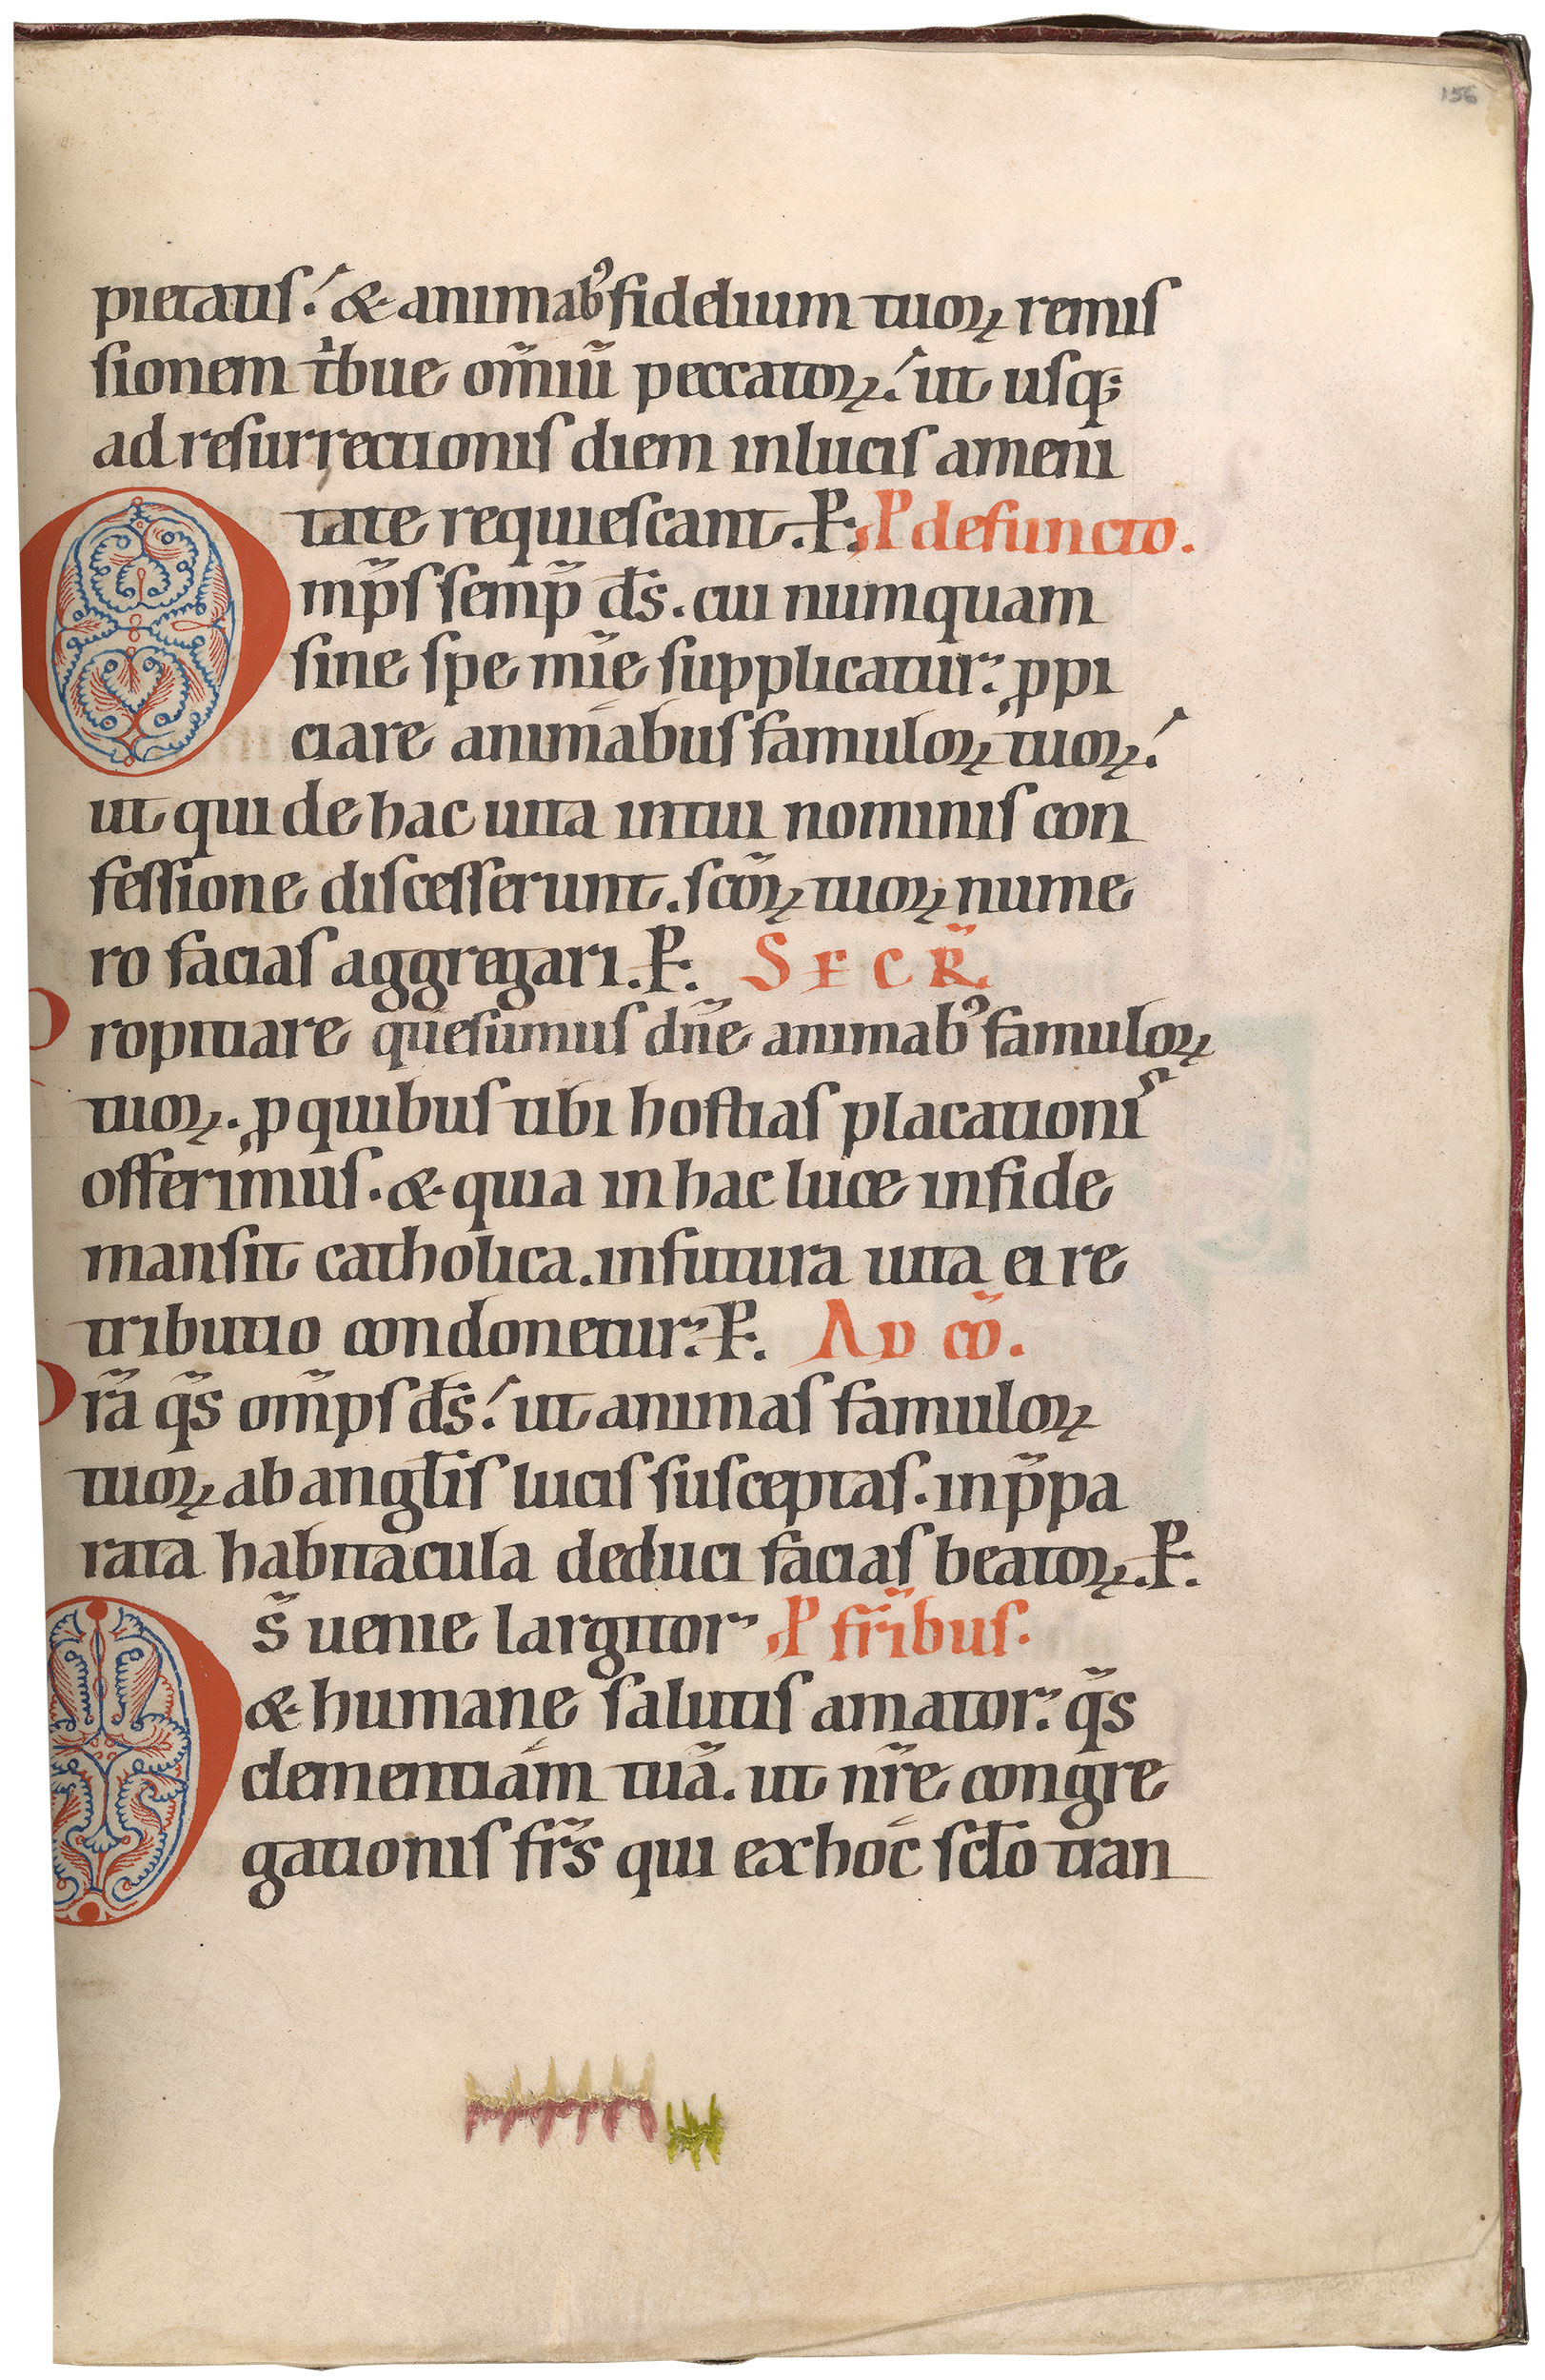 156
pietatis. & animabꝰ fidelium tuoꝝ remis
sionem tͥbue om̄iū peccatoꝝ. ut usq;
ad resurrectionis diem in lucis ameni
tate requiescant. P̱. P̱ defuncto.
Omp̄s semp̄ ds̄. cui numquam
sine spe mīe supplicatur. ꝓpi
ciare animabus famuloꝝ tuoꝝ.
ut qui de hac uita in tui nominis con
fessione discesserunt. sc̄oꝝ tuoꝝ nume
ro facias aggregari. P̱. SECR̄
Propitiare quesumus dn̄e animabꝰ famuloꝝ
tuoꝝ. ꝓ quibus tibi hostias placationis
offerimus. & quia in hac luce in fide
mansit catholica. in futura uita ei re
tributio condonetur. P̱. AD cō.
Pr̄a qs̄ om̄ps ds̄. ut animas famuloꝝ
tuoꝝ ab anglis lucis susceptas. in p̄pa
rata habitacula deduci facias beatoꝝ. P̱.
Ds̄ uenie largitor P̱ fr̄ibus.
& humane salutis amator. qs̄
clementiam tuā. ut nr̄e congre
gationis frs̄ qui ex hoc sclo tran